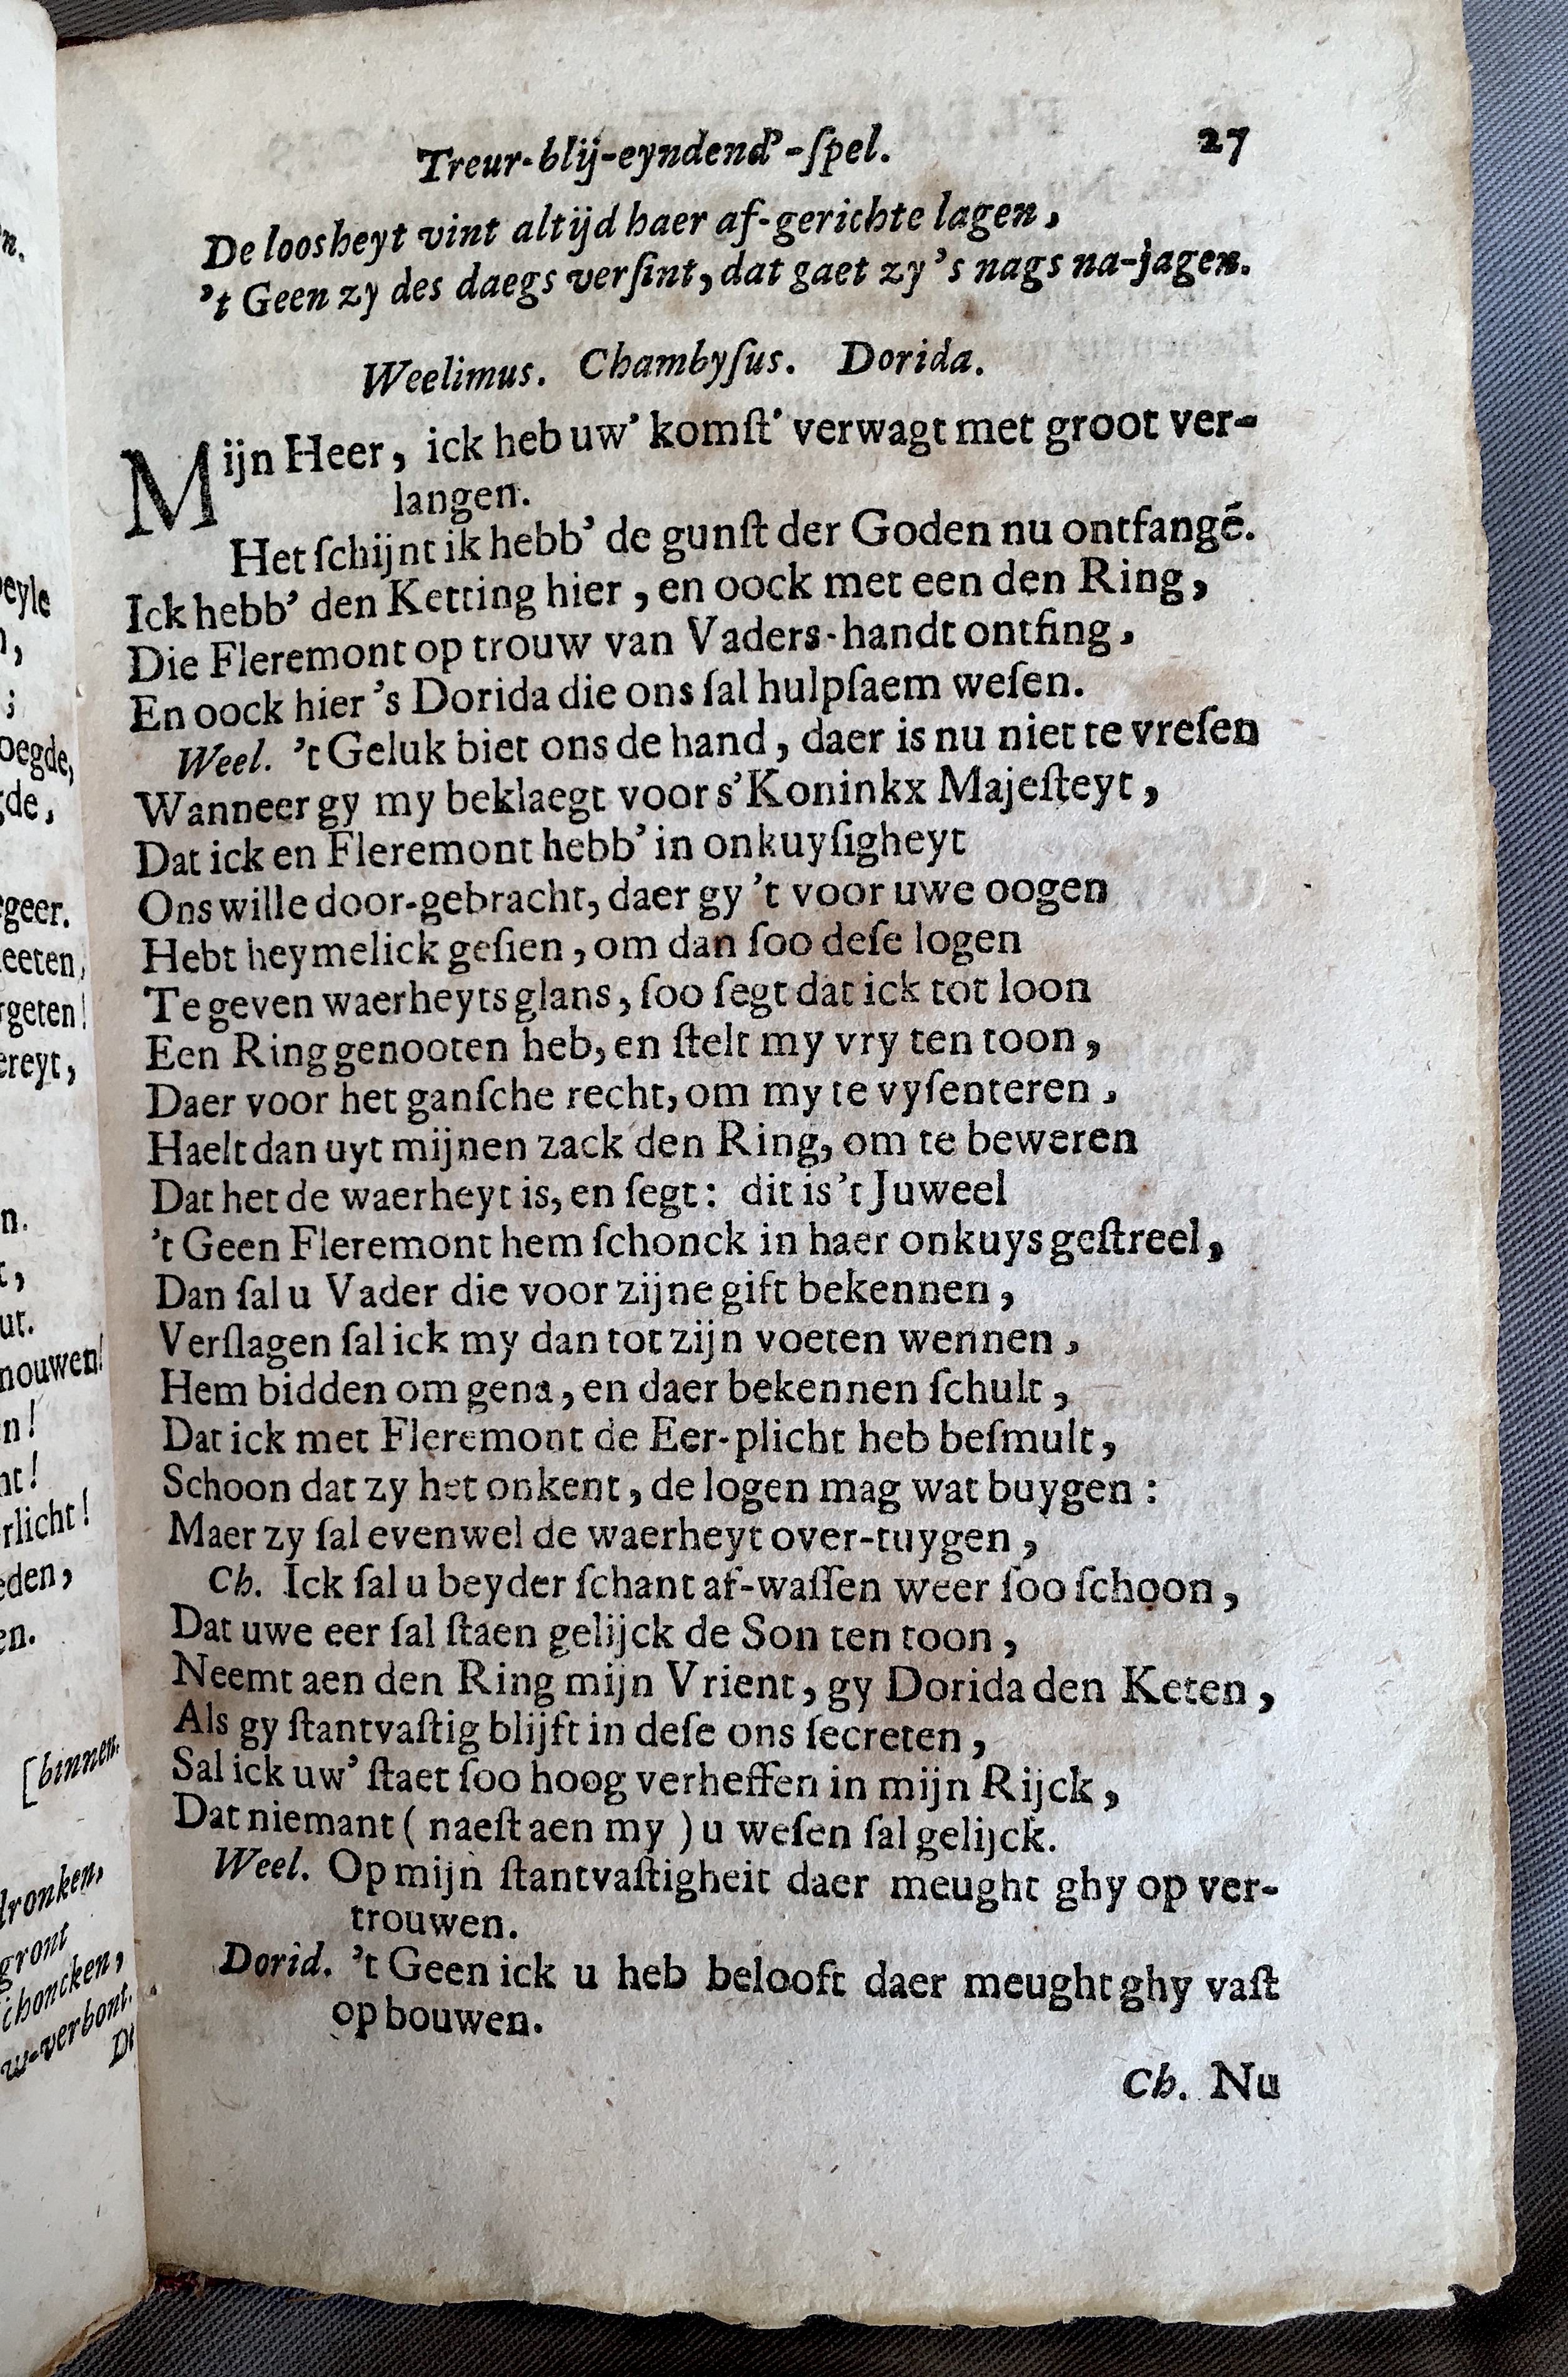 Treur-blij-eyndend'-ſpel. 27
De loosheyt vint altijd haer af-gerichte lagen,
't Geen zy des daegs verſint, dat gaet zy 's nags na-jagen.
Weelimus. Chambyſus. Dorida.
Mijn Heer, ick heb uw' komſt' verwagt met groot ver-
langen.
Het ſchijnt ik hebb' de gunſt der Goden nu ontfangē.
Ick hebb' den Ketting hier, en oock met een den Ring,
Die Fleremont op trouw van Vaders-handt ontfing,
En oock hier 's Dorida die ons ſal hulpſaem weſen.
Weel. 't Geluk biet ons de hand, daer is nu niet te vreſen
Wanneer gy my beklaegt voor s' Koninkx Majeſteyt,
Dat ick en Fleremont hebb' in onkuyſigheyt
Ons wille door-gebracht, daer gy 't voor uwe oogen
Hebt heymelick geſien, om dan ſoo deſe logen
Te geven waerheyts glans, ſoo ſegt dat ick tot loon
Een Ring genooten heb, en ſtelt my vry ten toon,
Daer voor het ganſche recht, om my te vyſenteren,
Haelt dan uyt mijnen zack den Ring, om te beweren
Dat het de waerheyt is, en ſegt: dit is 't Juweel
't Geen Fleremont hem ſchonck in haer onkuys geſtreel,
Dan ſal u Vader die voor zijne gift bekennen,
Verſlagen ſal ick my dan tot zijn voeten wennen,
Hem bidden om gena, en daer bekennen ſchult,
Dat ick met Fleremont de Eer-plicht heb beſmult,
Schoon dat zy het onkent, de logen mag wat buygen:
Maer zy ſal evenwel de waerheyt over-tuygen,
Ch. Ick ſal u beyder ſchant af-waſſen weer ſoo ſchoon,
Dat uwe eer ſal ſtaen gelijck de Son ten toon,
Neemt aen den Ring mijn Vrient, gy Dorida den Keten,
Als gy ſtantvaſtig blijft in deſe ons ſecreten,
Sal ick uw' ſtaet ſoo hoog verheffen in mijn Rijck,
Dat niemant ( naeſt aen my ) u weſen ſal gelijck.
Weel. Op mijn ſtantvaſtigheit daer meught ghy op ver-
trouwen.
Dorid. 't Geen ick u heb belooft daer meught ghy vaſt
op bouwen.
Ch. Nu